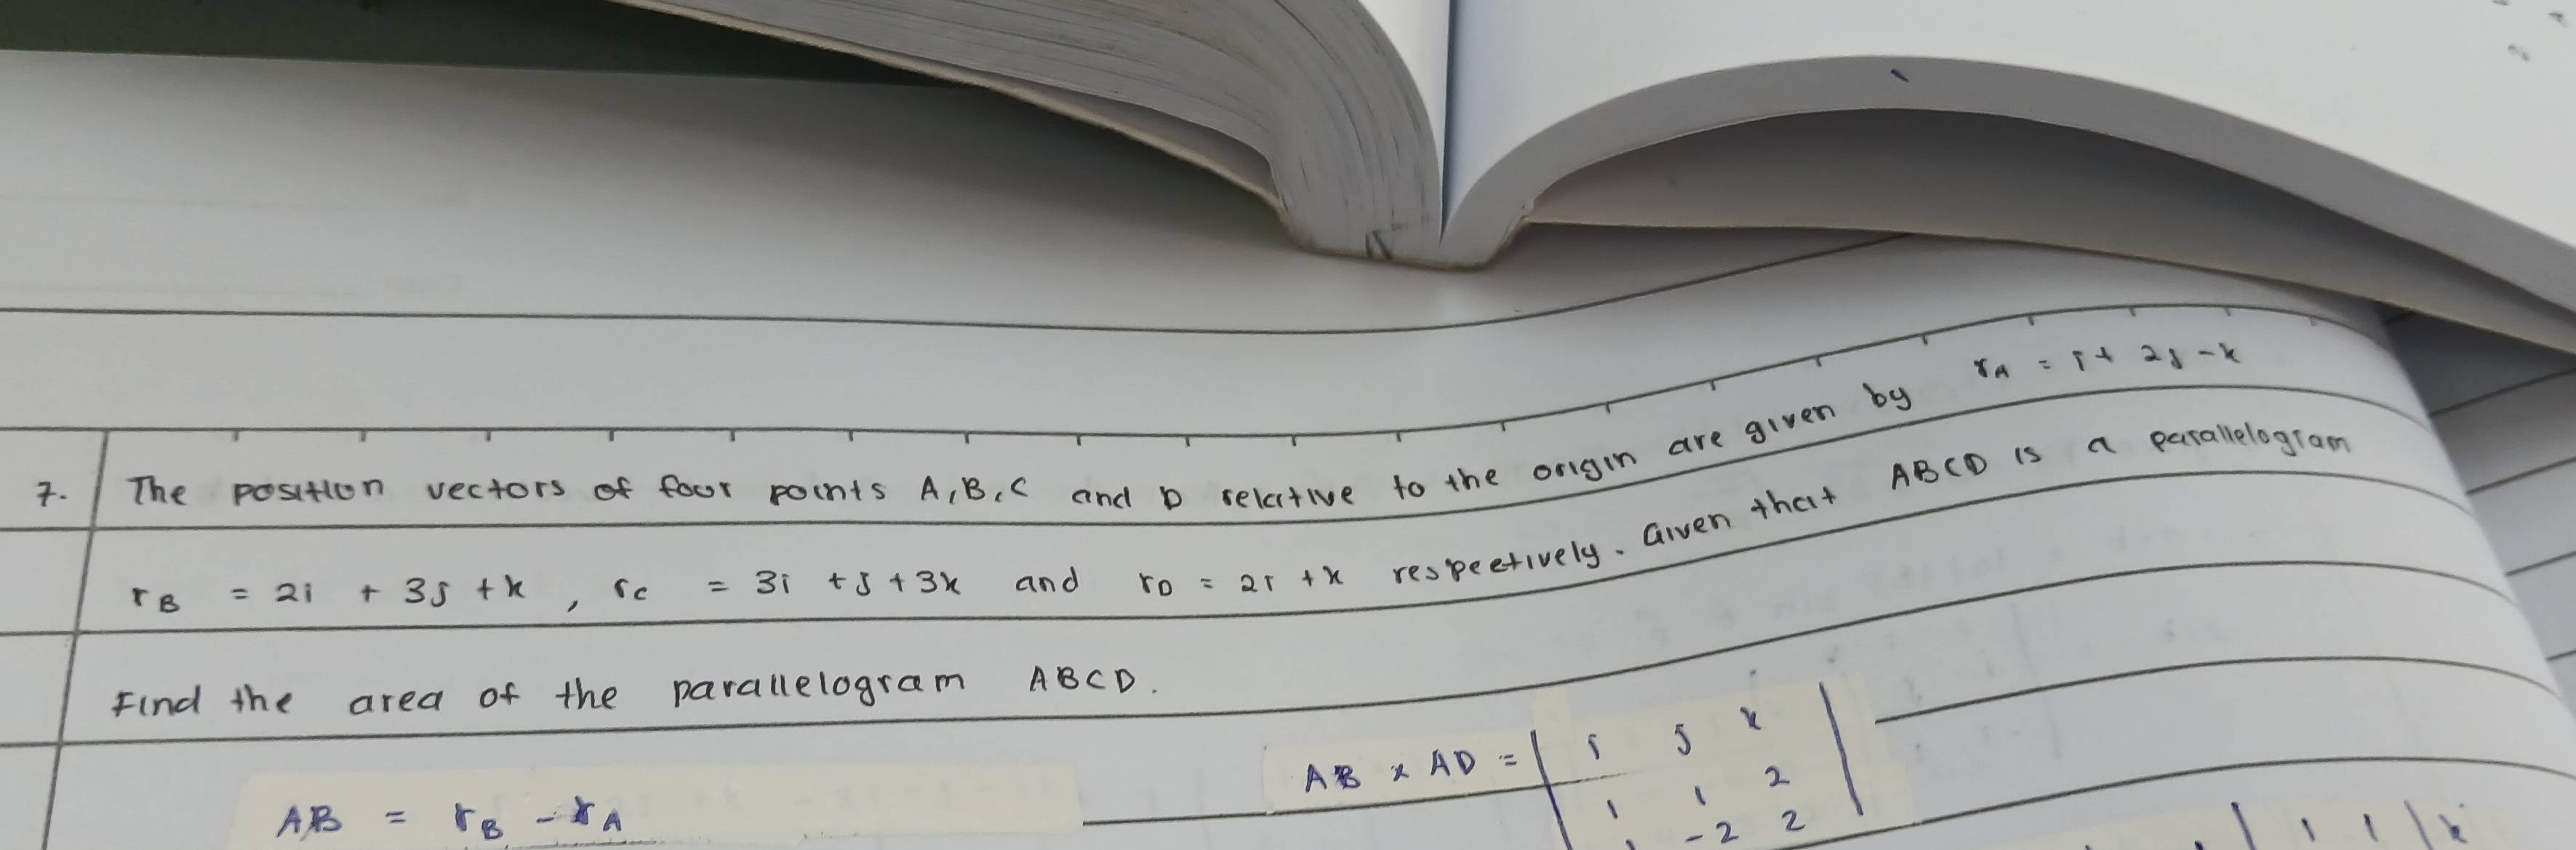 7. The position vectors of four points A, B, C and D relative to the origin are given by rA = i + 2j - k
rB = 2i + 3j + k , rC = 3i + j + 3k and rD = 2i + k respectively. Given that ABCD is a parallelogram
Find the area of the parallelogram ABCD.
AB = rB - rA
AB x AD = | i j k |
1 1 2
1 -2 2
| 1 1 | k